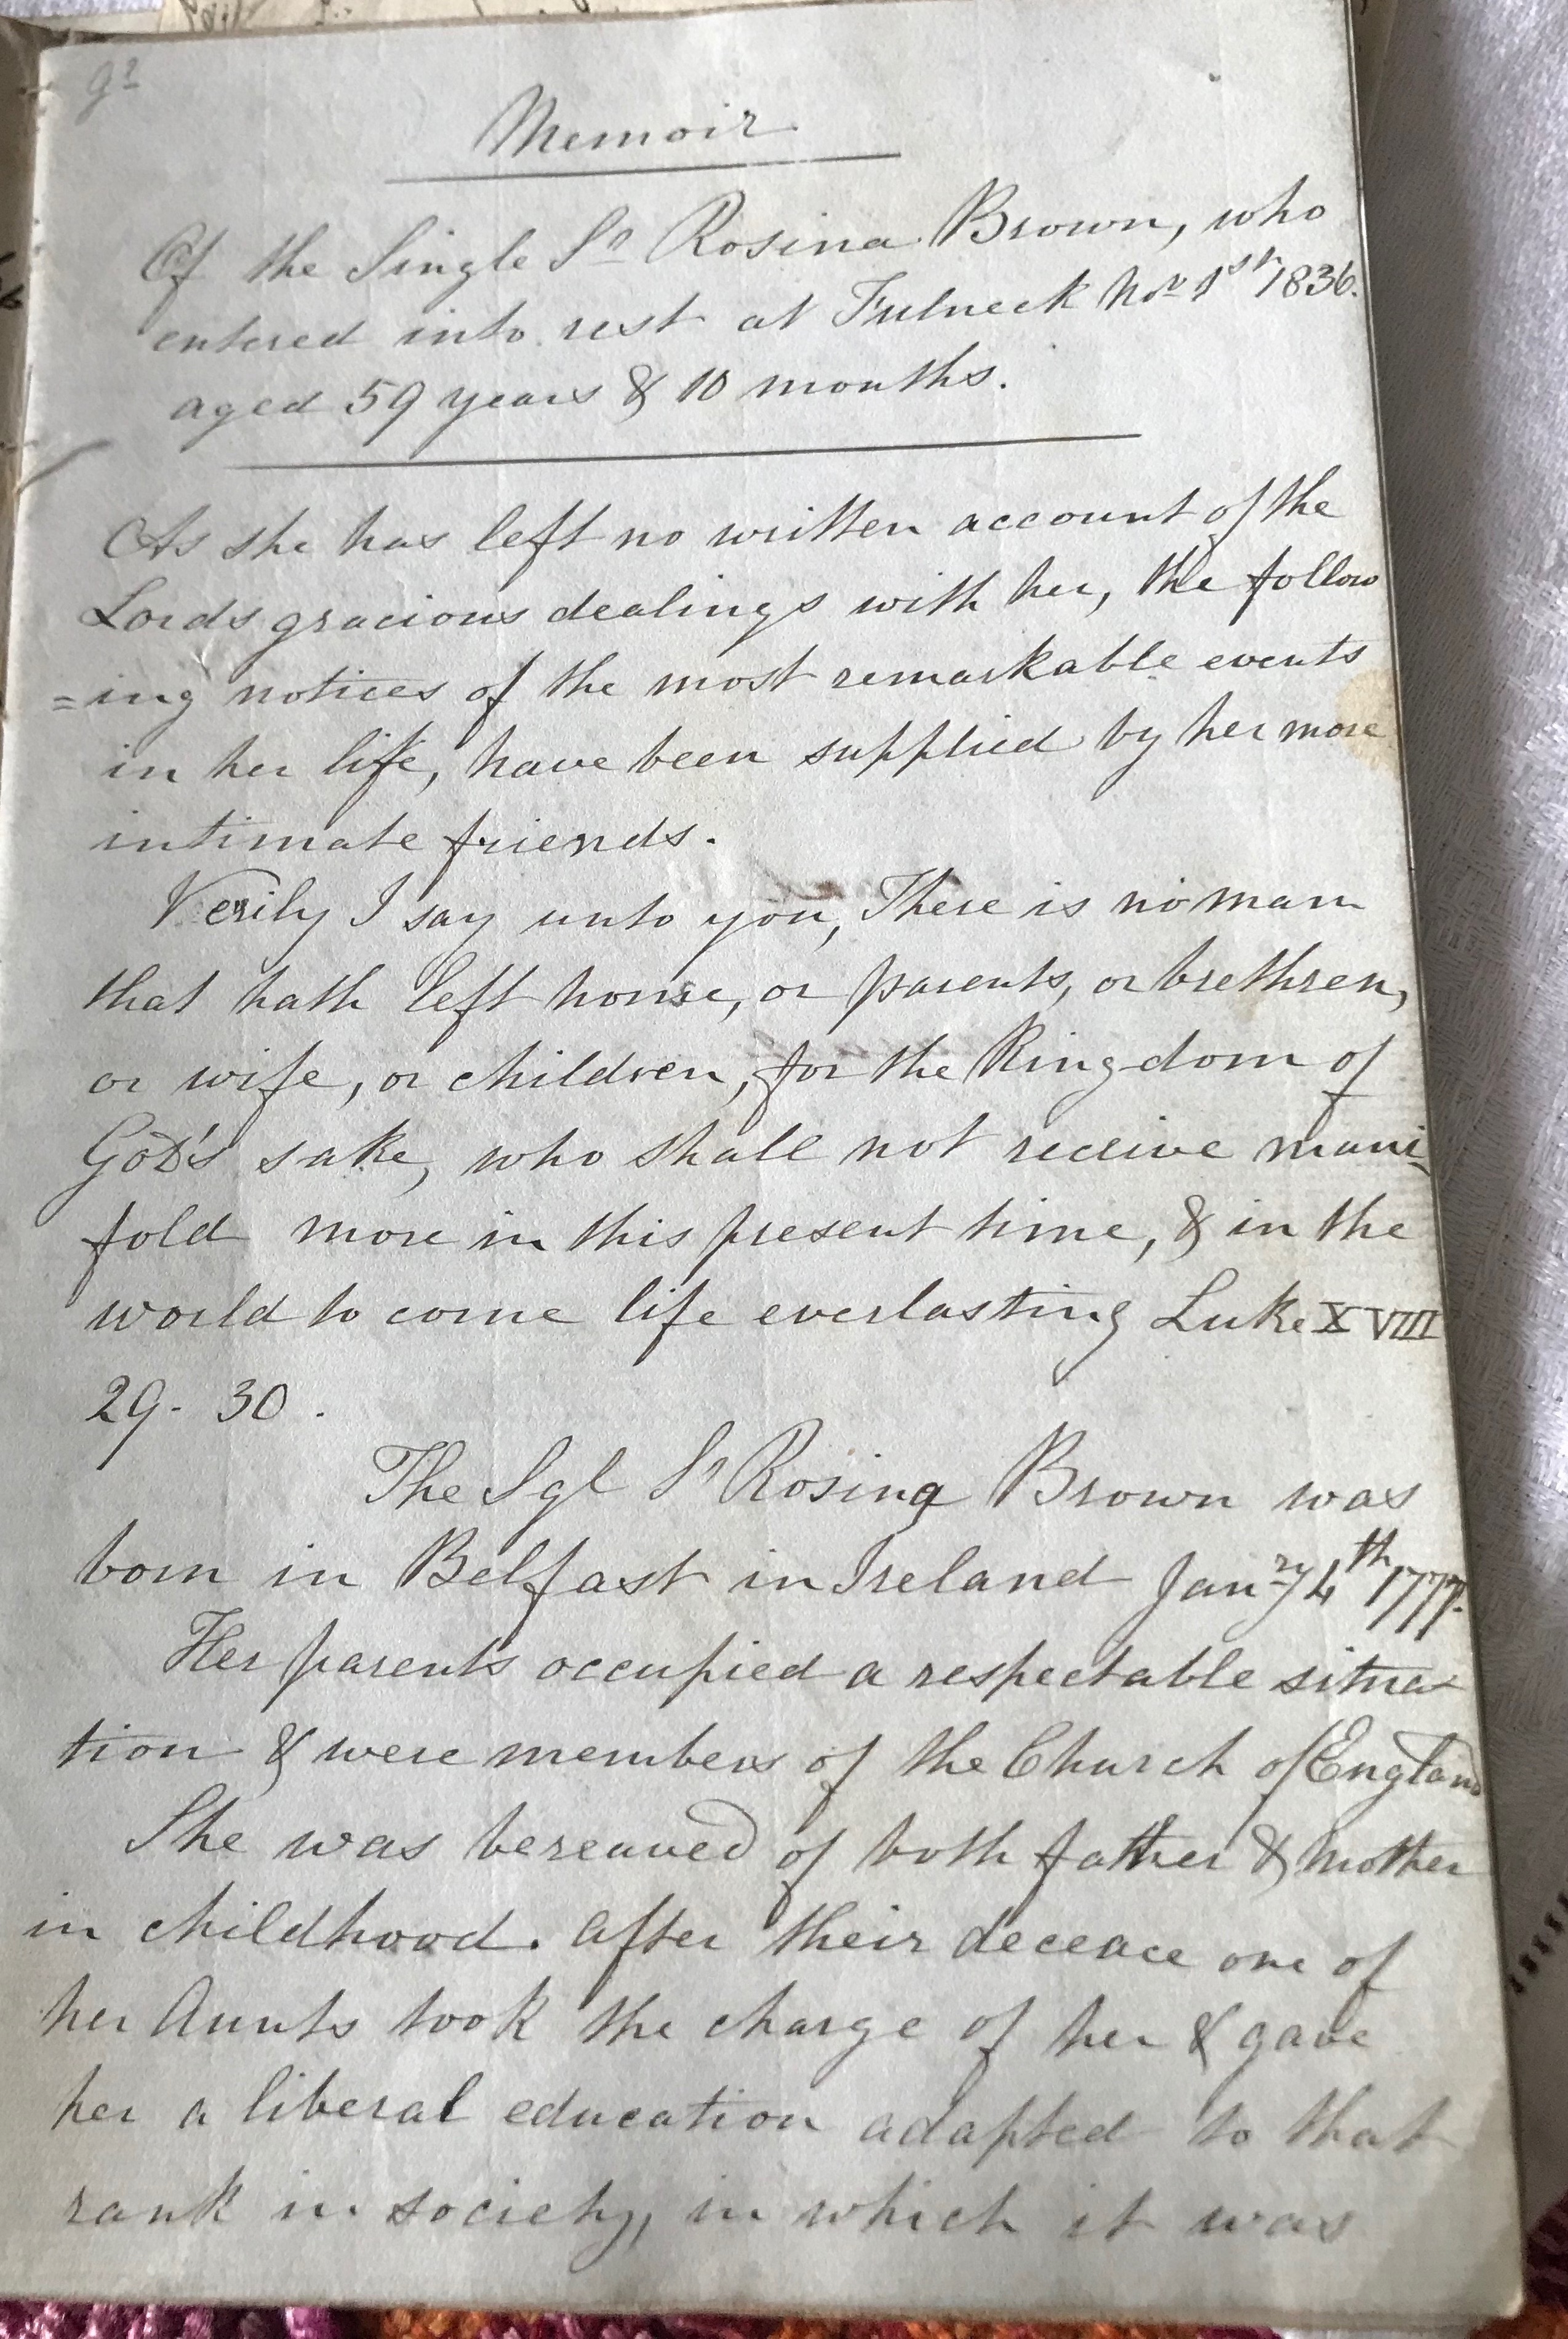 Memoir
Of the Single Sr Rosina Brown, who
entered into rest at Fulneck Nov 1st 1836.
aged 59 years & 10 months.
As she has left no written account of the
Lords gracious dealings with her, the follow
=ing notices of the most remarkable events
in her life, have been supplied by her more
intimate friends.
Verily I say unto you, There is no man
that hath left house, or parents, or brethren,
or wife, or children, for the Kingdom of
God's sake, who shall not receive mani-
fold more in this present time, & in the
world to come life everlasting Luke XVIII
29. 30.
The Sgl Sr Rosina Brown was
born in Belfast in Ireland Janry 4th 1777.
Her parents occupied a respectable situa
tion & were members of the Church of England
She was bereaved of both father & mother
in childhood. after their deceace one of
her Aunts took the charge of her & gave
her a liberal education adapted to that
rank in society, in which it was